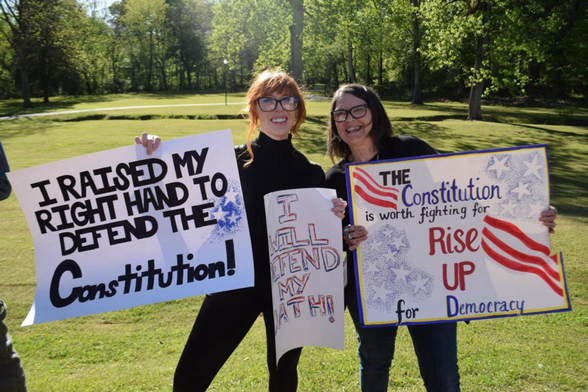 I RAISED MY
RIGHT HAND TO
DEFEND THE
Constitution!
I
WILL
DEFEND
MY
OATH!
THE
Constitution
is worth fighting for
Rise
UP
for Democracy